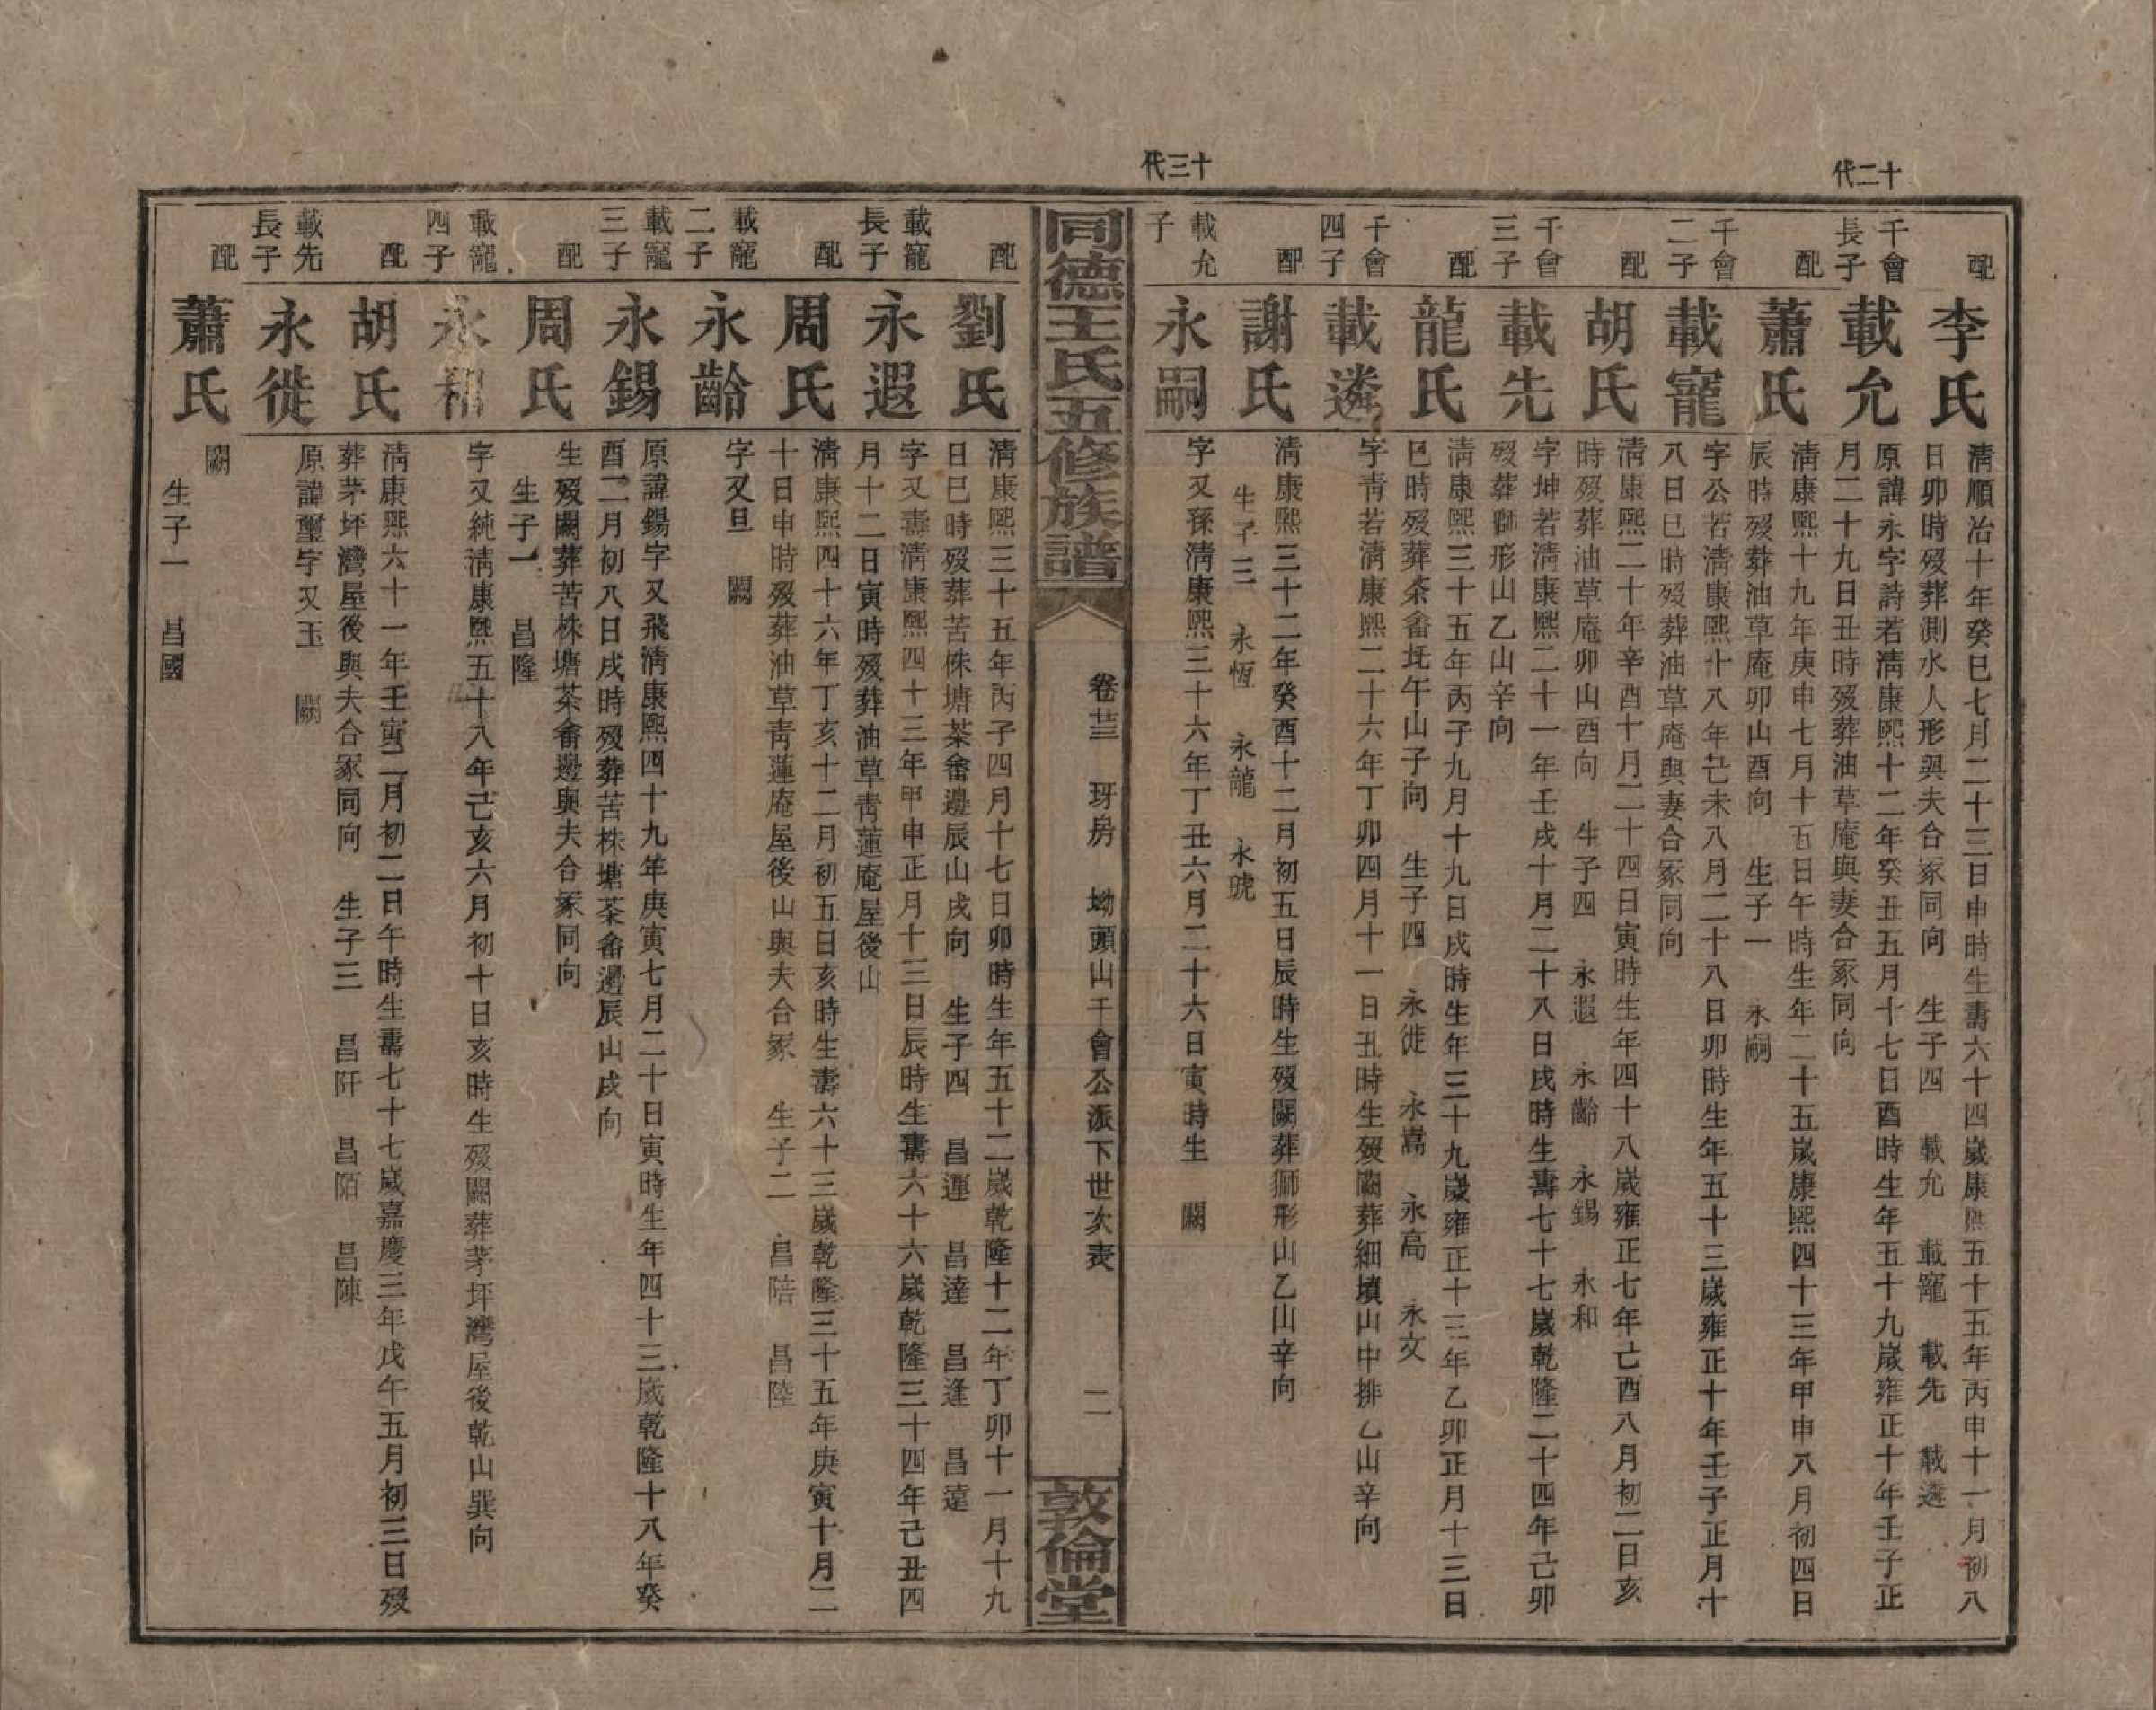 十二代
配
李氏
清順治十年癸巳七月二十三日申時生壽六十四歲康熙五十五年丙申十一月初八
日卯時歿葬測水人形與夫合冢同向 生子四 載允 載寵 載先 載遴
千會
長子
載允
原諱永字詩若清康熙十二年癸丑五月十七日酉時生年五十九歲雍正十年壬子正
月二十九日丑時歿葬油草庵與妻合冢同向
配
蕭氏
清康熙十九年庚申七月十五日午時生年二十五歲康熙四十三年甲申八月初四日
辰時歿葬油草庵卯山酉向 生子一 永嗣
千會
二子
載寵
字公若清康熙十八年己未八月二十八日卯時生年五十三歲雍正十年壬子正月十
八日巳時歿葬油草庵與妻合冢同向
配
胡氏
清康熙二十年辛酉十月二十四日寅時生年四十八歲雍正七年己酉八月初二日亥
時歿葬油草庵卯山酉向 生子四 永遐 永齡 永錫 永和
千會
三子
載先
字坤若清康熙二十一年壬戌十月二十八日戌時生壽七十七歲乾隆二十四年己卯
歿葬獅形山乙山辛向
配
龍氏
清康熙三十五年丙子九月十九日戌時生年三十九歲雍正十三年乙卯正月十三日
巳時歿葬茶畬坵午山子向 生子四 永徙 永嵩 永高 永文
千會
四子
載遴
字青若清康熙二十六年丁卯四月十一日丑時生歿闕葬細墳山中排乙山辛向
配
謝氏
清康熙三十二年癸酉十二月初五日辰時生歿闕葬獅形山乙山辛向
生子三 永恆 永龍 永琥
十三代
載允
子
永嗣
字又孫清康熙三十六年丁丑六月二十六日寅時生 闕
同德王氏五修族譜
卷廿三 玡房 坳頭山千會公派下世次表
二
敦倫堂
配
劉氏
清康熙三十五年丙子四月十七日卯時生年五十二歲乾隆十二年丁卯十一月十九
日巳時歿葬苦株塘茶畬邊辰山戌向 生子四 昌運 昌達 昌逢 昌遠
載寵
長子
永遐
字又壽清康熙四十三年甲申正月十三日辰時生壽六十六歲乾隆三十四年己丑四
月十二日寅時歿葬油草青蓮庵屋後山
配
周氏
清康熙四十六年丁亥十二月初五日亥時生壽六十三歲乾隆三十五年庚寅十月二
十日申時歿葬油草青蓮庵屋後山與夫合冢 生子二 昌陪 昌陸
載寵
二子
永齡
字又旦 闕
載寵
三子
永錫
原諱錫字又飛清康熙四十九年庚寅七月二十日寅時生年四十三歲乾隆十八年癸
酉二月初八日戌時歿葬苦株塘茶畬邊辰山戌向
配
周氏
生歿闕葬苦株塘茶畬邊與夫合冢同向
生子一 昌隆
載寵
四子
永和
字又純清康熙五十八年己亥六月初十日亥時生歿闕葬茅坪灣屋後乾山巽向
配
胡氏
清康熙六十一年壬寅二月初二日午時生壽七十七歲嘉慶三年戊午五月初三日歿
葬茅坪灣屋後與夫合冢同向 生子三 昌阡 昌陌 昌陳
載先
長子
永徙
原諱璽字又玉 闕
配
蕭氏
闕
生子一 昌國